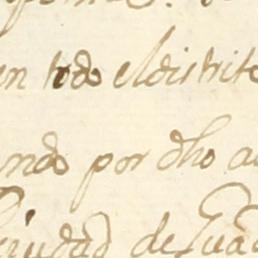 en todo el distrito
ando por dho a
Ciudad de Gua